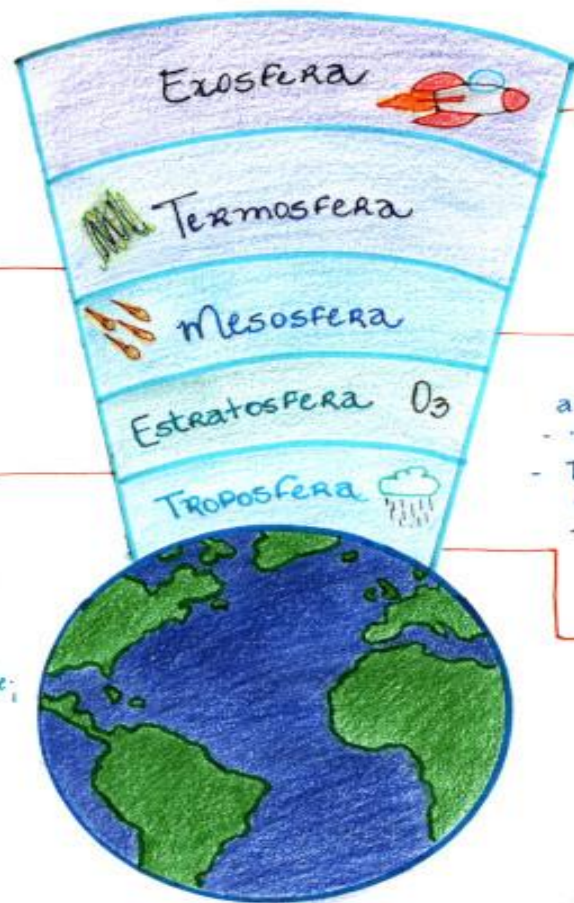 Exosfera
Termosfera
Mesosfera
Estratosfera O3
Troposfera
a
-
- T
e;